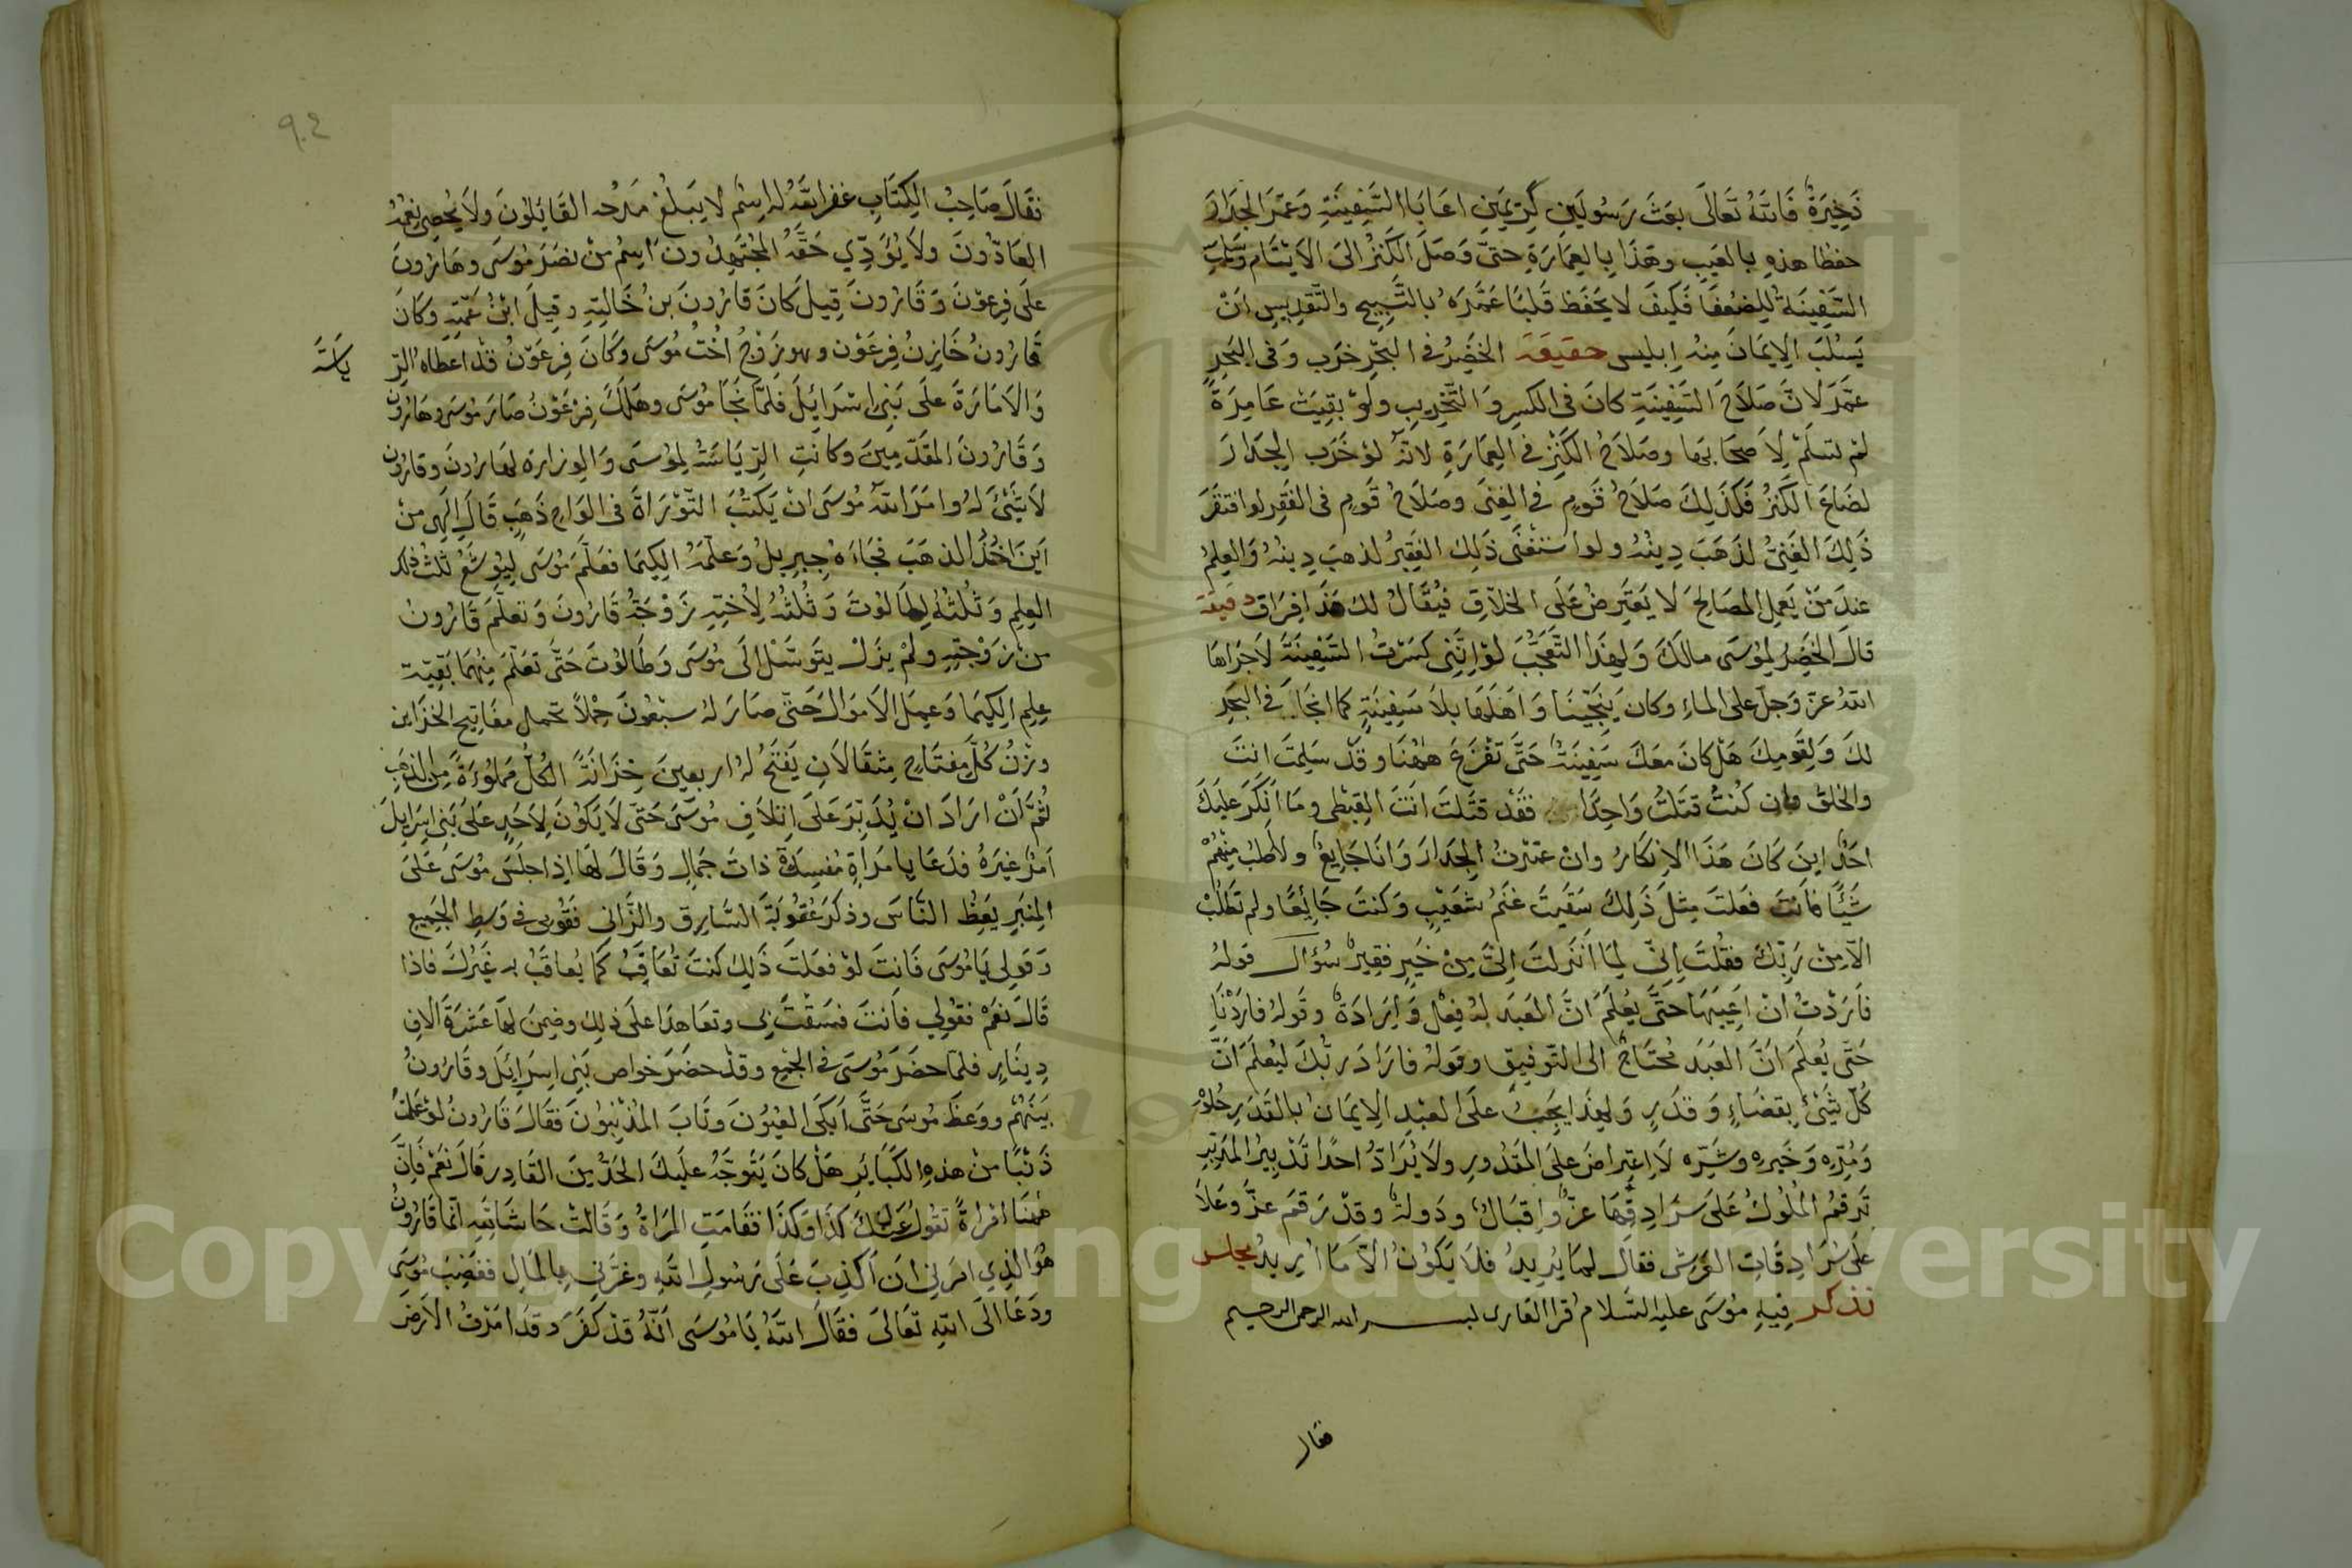 ذخيرة فالله تعالى بعث رسولين كريمين اعابا السفينة وعمرا الجدار
حفظا هذه بالعيب وهذا بالعمارة حتى وصل الكنز الى الايتام
السفينة للضعفا فكيف لا يحفظ قلبا عمره بالتسبيح والتقديس ان
يسلب الايمان منه ابليس حقيقة الخضر في البحر خرب وفى البر
عمر لان صلاح السفينة كان فى الكسر والتخريب ولو بقيت عامرة
لم تسلم لاصحابها وصلاح الكنز في العمارة لانه لو خرب الجدار
لضاع الكنز فكذلك صلاح قوم في الغنى وصلاح قوم فى الفقر لو افتقر
ذلك الغني لذهب دينه ولو استغنى ذلك الفقير لذهب دينه والعلم
عند من يعمل المصالح لا يعترض على الخلاق فيقال لك هذا فراق دقيقة
قال الخضر لموسى مالك ولهذا التعجب لو انني كسرت السفينة لاجراها
الله عز وجل على الماء وكان ينجينا واهلها بلا سفينة كما انجا في البحر
لك ولقومك هل كان معك سفينة حتى تفزع ههنا وقد سلمت انت
والخلق وان كنت قتلت واحدا فقد قتلت انت القبطى وما انكر عليك
احد اين كان هذا الانكار وان عمرت الجدار وانا جايع ولا طلب منهم
شيئا فانت فعلت مثل ذلك سقيت غنم شعيب وكنت جائعا ولم تطلب
الا من ربك فقلت اني لما انزلت الي من خير فقير سؤال قوله
فاردت ان اعيبها حتى يعلم ان العبد له فعل وارادة وقوله فاردنا
حتى يعلم ان العبد محتاج الى التوفيق وقوله فاراد ربك ليعلم ان
كل شيئ بقضاء وقدر ولهذا يجب على العبد الايمان بالقدر حلوه
ومره وخيره وشره لا اعتراض على المقدور ولا يراد احدا تدبير المدبر
ترقم الملوك على سرادقها عز واقبال ودولة وقد رقم عز وعلا
على سرادقات العرش فقال لما يريد فلا يكون الا ما اريد مجلس
نذكر فيه موسى عليه السلام قرا القارى بسم الله الرحمن الرحيم
فقال
٩٠٤
فقال صاحب الكتاب غفر الله له اسم لا يبلغ مدحه القايلون ولا يحصي نعمه
العادون ولا يؤدي حقه المجتهدون اسم من نصر موسى وهارون
على فرعون وقارون قيل كان قارون بن خالته وقيل ابن عمته وكان
قارون خازن فرعون وهو زوج اخت موسى وكان فرعون قد اعطاه الر
ياسة
والامارة على بني اسرائيل فلما نجا موسى وهلك فرعون صار موسى وهارون
وقارون المقدمين وكانت الرياسة لموسى والوزارة لهارون وقارون
لا شيئ له وامر الله موسى ان يكتب التوراة فى الواح ذهب قال الهي من
اين اخذ الذهب فجاءه جبريل وعلمه الكيميا فعلم موسى ليوشع ثلث ذلك
العلم وثلثه لطالوت وثلثه لاخته زوجة قارون وتعلم قارون
من زوجته ولم يزل يتوسل الى موسى وطالوت حتى تعلم منهما بقية
علم الكيميا وعمل الاموال حتى صار له سبعون حملا تحمل مفاتيح الخزاين
وزن كل مفتاح مثقالان يفتح له اربعين خزانة الكل مملوءة من الذهب
ثم ان اراد ان يدبر على اتلاف موسى حتى لا يكون لاحد على بني اسرايل
امر غيره فدعا بامراة مفسدة ذات جمال وقال لها اذا جلس موسى على
المنبر يعظ الناس وذكر عقوبة السارق والزانى فقومي في وسط الجميع
وقولى يا موسى فانت لو فعلت ذلك كنت تعاقب كما يعاقب به غيرك فاذا
قال نعم فقولي فانت فسقت بي وتعاهدا على ذلك وضمن لها عشرة الاف
دينار فلما حضر موسى في الجمع وقد حضر خواص بني اسرايل وقارون
بينهم ووعظ موسى حتى ابكى العيون وتاب المذنبون فقال قارون لو عملت
ذنبا من هذه الكبائر هل كان يتوجه عليك الحد من القادر قال نعم فان
ههنا امراة تقول عليك كذا وكذا فقامت المراة وقالت حاشا لله انما قارون
هو الذي امرني ان اكذب على رسول الله وغرني بالمال فغضب موسى
ودعا الى الله تعالى فقال الله يا موسى انه قد كفر وقد امرت الارض
Copyright © King Saud University